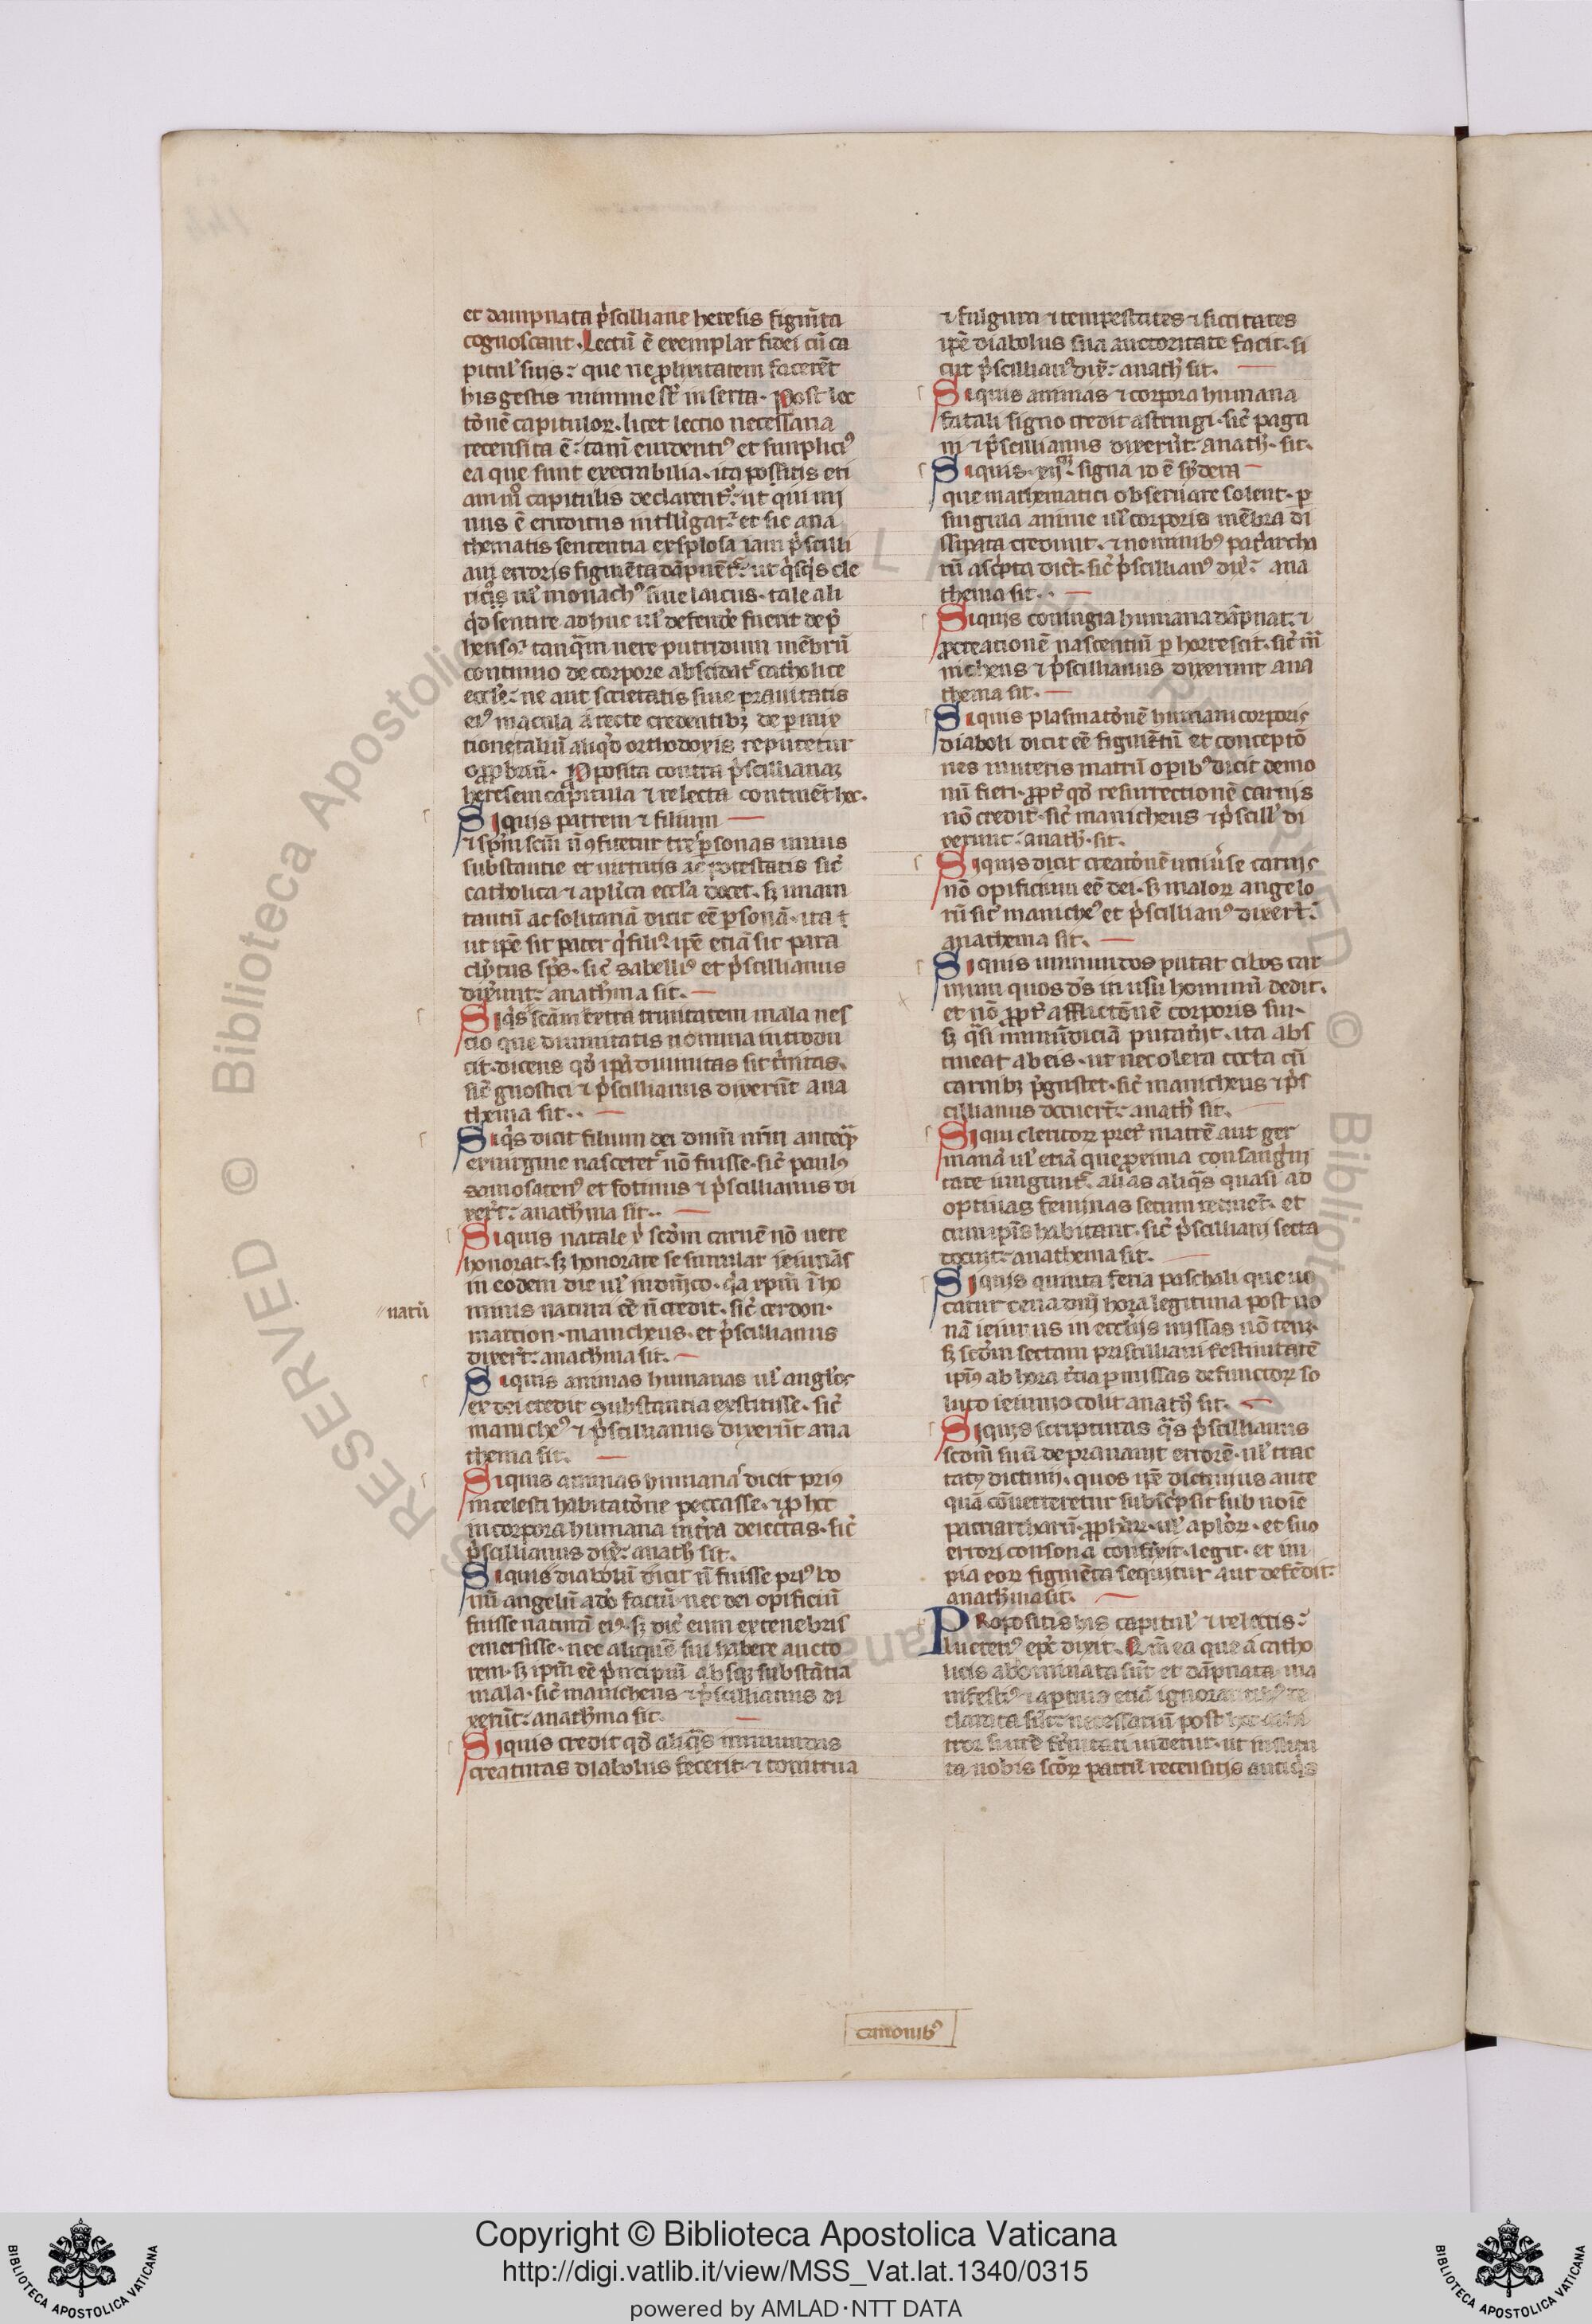 et dampnata p̓scilliane heresis figm̄ta
cognoscant. Lectū ē exemplar fidei cū ca
pitul̓ suis: que ne ꝓlixitatem facerēt
his gestis minime sūt inserta. Post lec
tōnē capitulor̄. licet lectio necessaria
recensita ē: tam̄ euidenti⁹ et simplici⁹
ea que sunt execrabilia. ita positis eti
am in capitulis declarent᷑: ut qui mi
nus ē eruditus intelligat: et sic ana
thematis sententia explosa iam p̓scilli
ani erroris figmēta dāpnēt᷑: ut q̓sq̓s cle
ric⁹ ul̓ monach⁹ siue laicus. tale ali
q̓d sentire adhuc ul̓ defendē fuerit dep̓
hensus: tanq̄m uere putridum mēbrū
continuo de corpore abscidat᷑ catholice
eccl̓e: ne aut societatis sue prauitatis
ei⁹ macula a recte credentibꝫ de permix
tione taliū aliq̓d orthodoxis reputetur
opprobriū. Proposita contra p̓scillianaꝫ
heresem capitula ⁊ relecta continēt hec.
Siquis patrem ⁊ filium
⁊ sp̄m sc̄m n̄ ꝯfitetur tres ꝑsonas unius
substantie et uirtutis ac potestatis sic̄
catholica ⁊ apl̓ica eccl̓ia docet. sꝫ unam
tantū ac solitariā dicit eē ꝑsonā. ita
ut ipē sit pater q̓ fili⁹. ipē etiā sit para
clytus sp̄s. sic̄ sabelli⁹ et p̓scillianus
dixerunt: anath̓ma sit.
Siq̓s ext̓ sc̄am trinitatem
cio que diuinitatis nomina introdu
cit. dicens qd̓ ip̄a diuinitas sit t̓nitas.
sic̄ gnostici ⁊ p̓scillianus dixerūt ana
thema sit.
Siq̓s dicit filium dei dn̄m nr̄m anteq̄
ex uirgine nasceret᷑ nō fuisse. sic̄ paulus
samosaten⁹ et fotinus ⁊ p̓scillianus di
xer̄t: anath̓ma sit.
Siquis natale xp̄i scd̓m carnē nō uere
honorat. sꝫ honorare se simulat ieiunās
in eodem die ul̓ in dn̄ico. q̓a xp̄m ī ho
natū
minis natura eē n̄ credit. sic̄ cerdon.
marcion. manicheus. et p̓scillianus
dixer̄t: anath̓ma sit.
Siquis animas humanas ul̓ angl̓os
ex dei credit substantia exstitisse. sic̄
maniche⁹ ⁊ p̓scillianus dixerūt ana
thema sit.
Siquis animas humanas dicit pri⁹
in celesti habitatōne peccasse. ⁊ ꝓ hoc
in corpora humana in t̓ra deiectas. sic̄
p̓scillianus dix̄: anath̓ sit.
Siquis diabolū dicit n̄ fuisse pri⁹ bo
nū angelū a dō factū. nec dei opificiū
fuisse naturā ei⁹. sꝫ dic̄ eum ex tenebris
emersisse. nec aliquē sui habere aucto
rem. sꝫ ipm̄ eē p̓ncipiū absqꝫ substātia
mala. sic̄ manicheus ⁊ p̓scillianus di
xerūt: anath̓ma sit.
Siquis credit qd̓ aliq̄s in mundo
creaturas diabolus fecerit. ⁊ tonitrua
⁊ fulgura ⁊ tempestates ⁊ siccitates
ipē diabolus sua auctoritate facit. si
cut p̓scillian⁹ dix̄: anath̓ sit.
Siquis animas ⁊ corpora humana
fatali signo credit astringi. sic̄ paga
ni ⁊ p̓scillianus dixer̄t: anath̓. sit.
Siquis. xij. signa id ē sydera
que mathematici obseruare solent. ꝑ
singula anime ul̓ corporis mēbra di
ssipata credunt. ⁊ nominib⁹ patriarcha
rū ascripta dict̄. sic̄ p̓scillian⁹ dix̄: ana
thema sit.
Siquis coniugia humana dāpnat: ⁊
ꝓcreationē nascentiū ꝑhorrescit. sic̄ ma
nicheus ⁊ p̓scillianus dixerunt ana
thema sit.
Siquis plasmatōnē humani corporis
diaboli dicit eē figmētū et conceptō
nes in uteris matrū opib⁹ dicit demo
nū fieri. ꝓpt̓ qd̓ resurrectionē carnis
nō credit. sic̄ manicheus ⁊ p̓scill̓ di
xerunt: anath̓. sit.
Siquis dicit creatōnē uniu̓se carnis
nō opificium eē dei. sꝫ malor̄ angelo
rū sic̄ maniche⁹ et p̓scillian⁹ dixer̄t:
anathema sit.
Siquis inmundos putat cibos car
nium quos d̄s in usū hominū dedit.
et nō ꝓpt̓ afflictōnē corporis sui.
sꝫ q̄si inmūdiciā putauit. ita abs
tineat ab eis. ut nec olera cocta cū
carnibꝫ p̓gustet. sic̄ manicheus ⁊ p̓s
cillianus docuer̄t: anath̓ sit.
Siqui clericor̄ pret̓ matrē aut ger
manā ul̓ etiā que ꝓxima consangui
tate iungunt᷑. alias aliq̄s quasi ad
optiuas feminas secum retinet. et
cum ip̄is habitant. sic̄ p̓scilliani secta
docuit: anathema sit.
Siquis quinta feria paschali que uo
catur cena dn̄i hora legitima post no
nā ieiunus in ecclijs missas nō tenꝫ.
sꝫ scd̓m sectam priscilliani festiuitatē
ipi⁹ ab hora t̓cia ꝑ missas defunctor̄ so
luto ieiunio colit anath̓ sit.
Siquis scripturas q̄s p̓scillianus
scd̓m suū deprauauit errorē. ul̓ trac
tatus dictinij. quos ipē dictinius ante
quā cōuerteretur subscripsit sub noīe
patriarcharū. ꝓphār̄. ul̓ apl̓or̄. et suo
errori consona confixit. legit. et im
pia eor̄ figmēta sequitur aut defēdit:
anath̓ma sit.
Propositis his capitul̓ ⁊ relectis:
lucreti⁹ ep̄c dixit. Qm̄ ea que a catho
licis abominata sūt et dāpnata. ma
nifesti⁹ ⁊ aptius etiā ignorantib⁹ de
clarata sūt: necessariū post hec
uidetur. ut institu
ta nobis sc̄or̄ patrū recensitis antiq̓s
canonib⁹
RESERVED © Biblioteca Apostolica Vaticana
Copyright © Biblioteca Apostolica Vaticana
http://digi.vatlib.it/view/MSS_Vat.lat.1340/0315
powered by AMLAD·NTT DATA
BIBLIOTECA APOSTOLICA VATICANA
BIBLIOTECA APOSTOLICA VATICANA